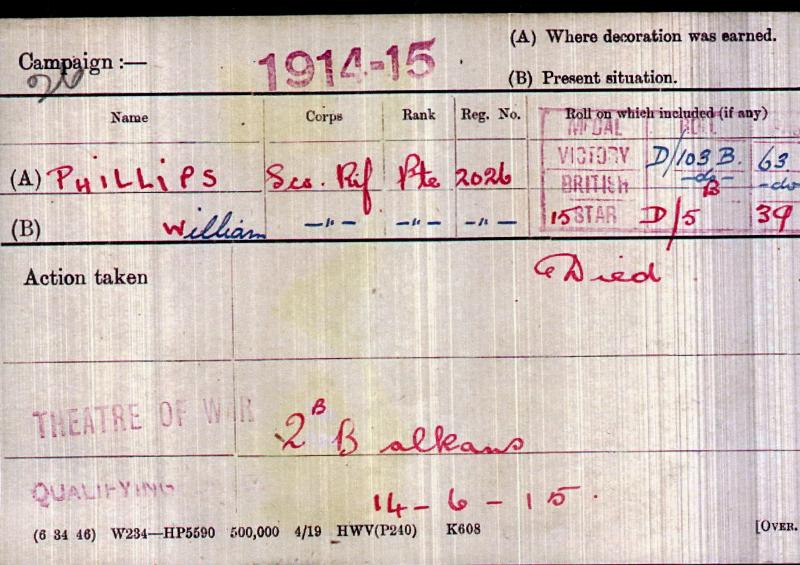 (A) Where decoration was earned.
Campaign :— 1914-15
(B) Present situation.
Name Corps Rank Reg. No. Roll on which included (if any)
MEDAL ROLL
(A) PHILLIPS Sco. Rif Pte 2026 VICTORY D/103 B. 63
BRITISH -do- B -do-
(B) William —"— —"— —"— 15 STAR D/5 39
Action taken Died
THEATRE OF WAR 2B Balkans
QUALIFYING 14-6-15.
(6 34 46) W234—HP5590 500,000 4/19 HWV(P240) K608 [OVER.